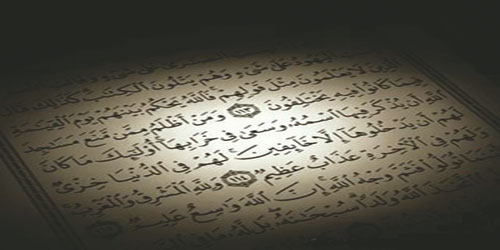 وَهُمْ يَتْلُونَ الْكِتَٰبَ كَذَٰلِكَ
لَا يَعْلَمُونَ مِثْلَ قَوْلِهِمْ فَاللَّهُ يَحْكُمُ بَيْنَهُمْ يَوْمَ الْقِيَٰمَةِ
فِيمَا كَانُوا فِيهِ يَخْتَلِفُونَ ١١٣ وَمَنْ أَظْلَمُ مِمَّن مَّنَعَ مَسَٰجِدَ
اللَّهِ أَن يُذْكَرَ فِيهَا اسْمُهُ وَسَعَىٰ فِي خَرَابِهَا أُولَٰئِكَ مَا كَانَ
لَهُمْ أَن يَدْخُلُوهَا إِلَّا خَائِفِينَ لَهُمْ فِي الدُّنْيَا خِزْيٌ
وَلَهُمْ فِي الْآخِرَةِ عَذَابٌ عَظِيمٌ ١١٤ وَلِلَّهِ الْمَشْرِقُ وَالْمَغْرِبُ
فَأَيْنَمَا تُوَلُّوا فَثَمَّ وَجْهُ اللَّهِ إِنَّ اللَّهَ وَٰسِعٌ عَلِيمٌ
اتَّخَذَ اللَّهُ وَلَدًا سُبْحَٰنَهُ بَل لَّهُ مَا فِي